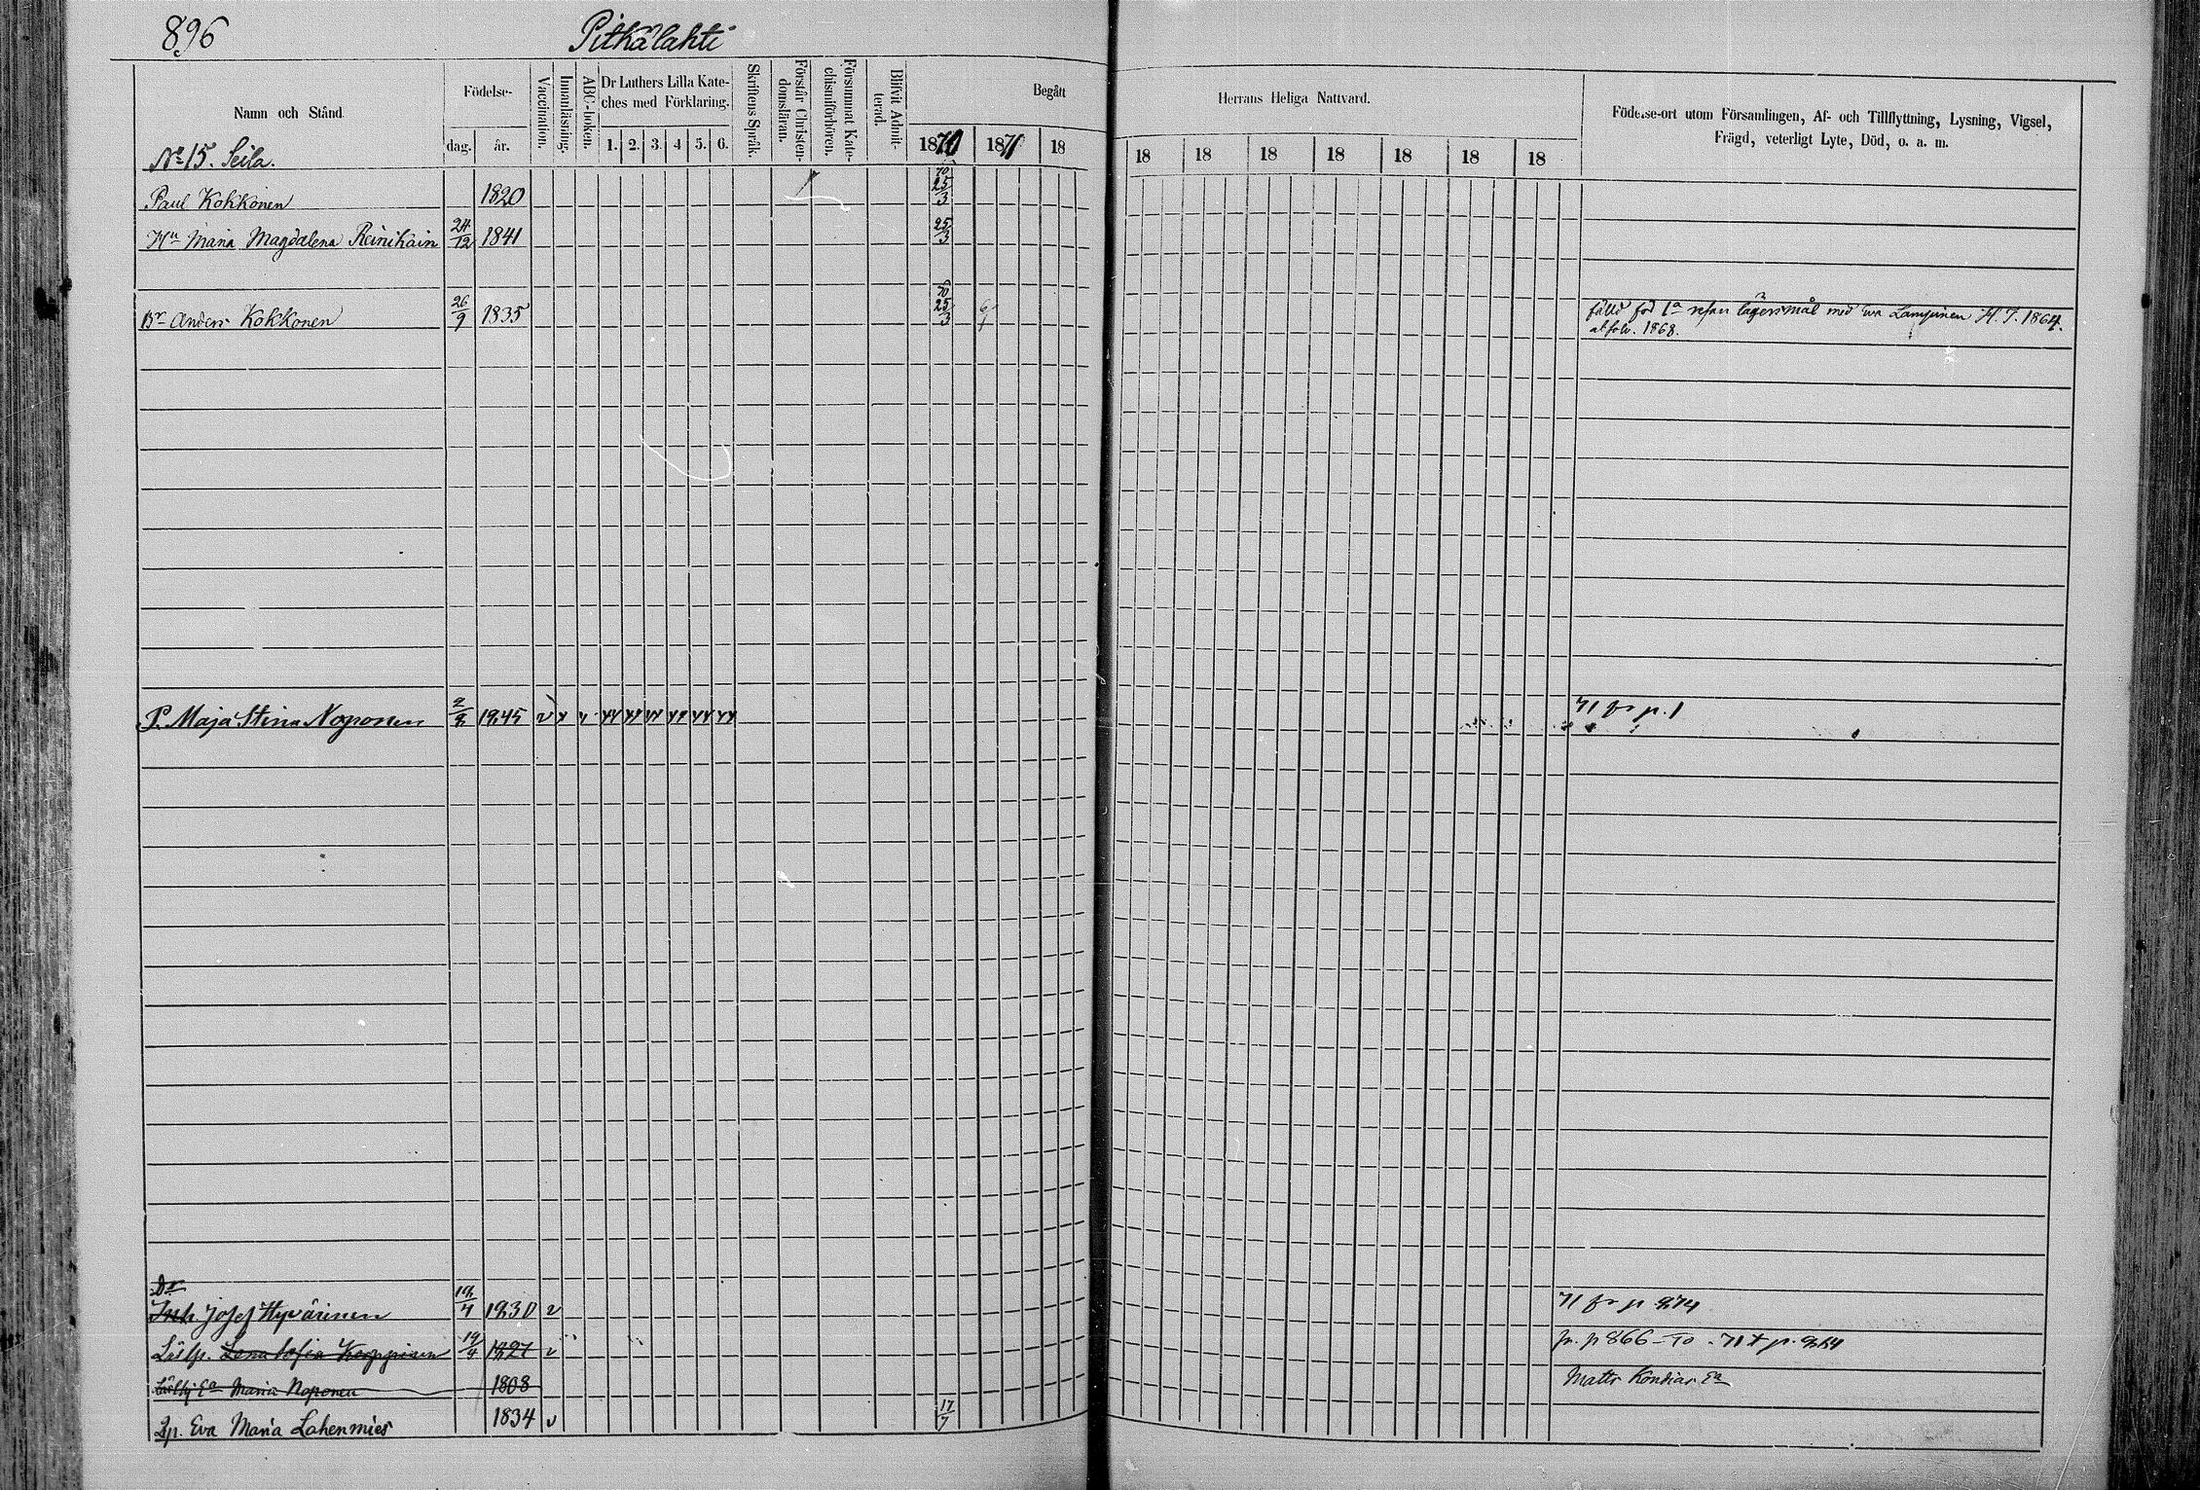 896
Pitkälahti
Namn och Stånd
Födelse-
dag.
år.
Vaccination.
Innanläsning.
ABC-boken.
Dr Luthers Lilla Kate-
ches med Förklaring.
1. 2. 3. 4 5. 6.
Skriftens Språk.
Förstår Christen-
domsläran.
Försummat Kate-
chismiförhören.
Blifvit Admit-
terad.
Begått
Herrans Heliga Nattvard.
1870 1871 18
18 18 18 18 18 18 18
Födelse-ort utom Församlingen, Af- och Tillflyttning, Lysning, Vigsel,
Frägd, veterligt Lyte, Död, o. a. m.
No 15. Seila.
Paul Kokkonen 1820 70 25/3
Hu Maria Magdalena Reinikain 24/12 1841 25/3
Br Anders Kokkonen 26/9 1835 70 25/3 6/1 fälld för 1a resan lägersmål med Eva H. T. 1864.
absolv. 1868.
P. Maja Stina Noponen 1845 v 71 fr p. 1
Dr
Inh. Josef Hyvärinen 1830 v 71 fr p 874
Lösp. Lena Sofia Korppinen 1827 v fr. p 866 - 70 . 71 t p. 864
Maria Noponen 1808 Matts Kondias Ea
Lp. Eva Maria Lahenmies 1834 v 17/7